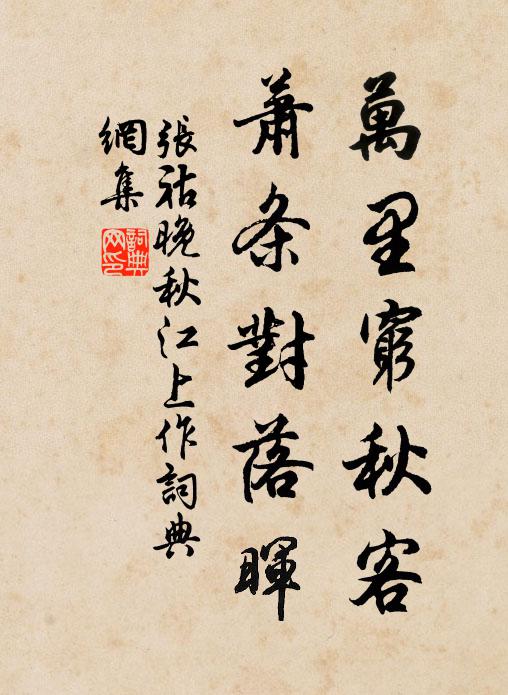 萬里窮秋客
蕭条對落暉
張祜晚秋江上作詞典
網集
詞典
网印